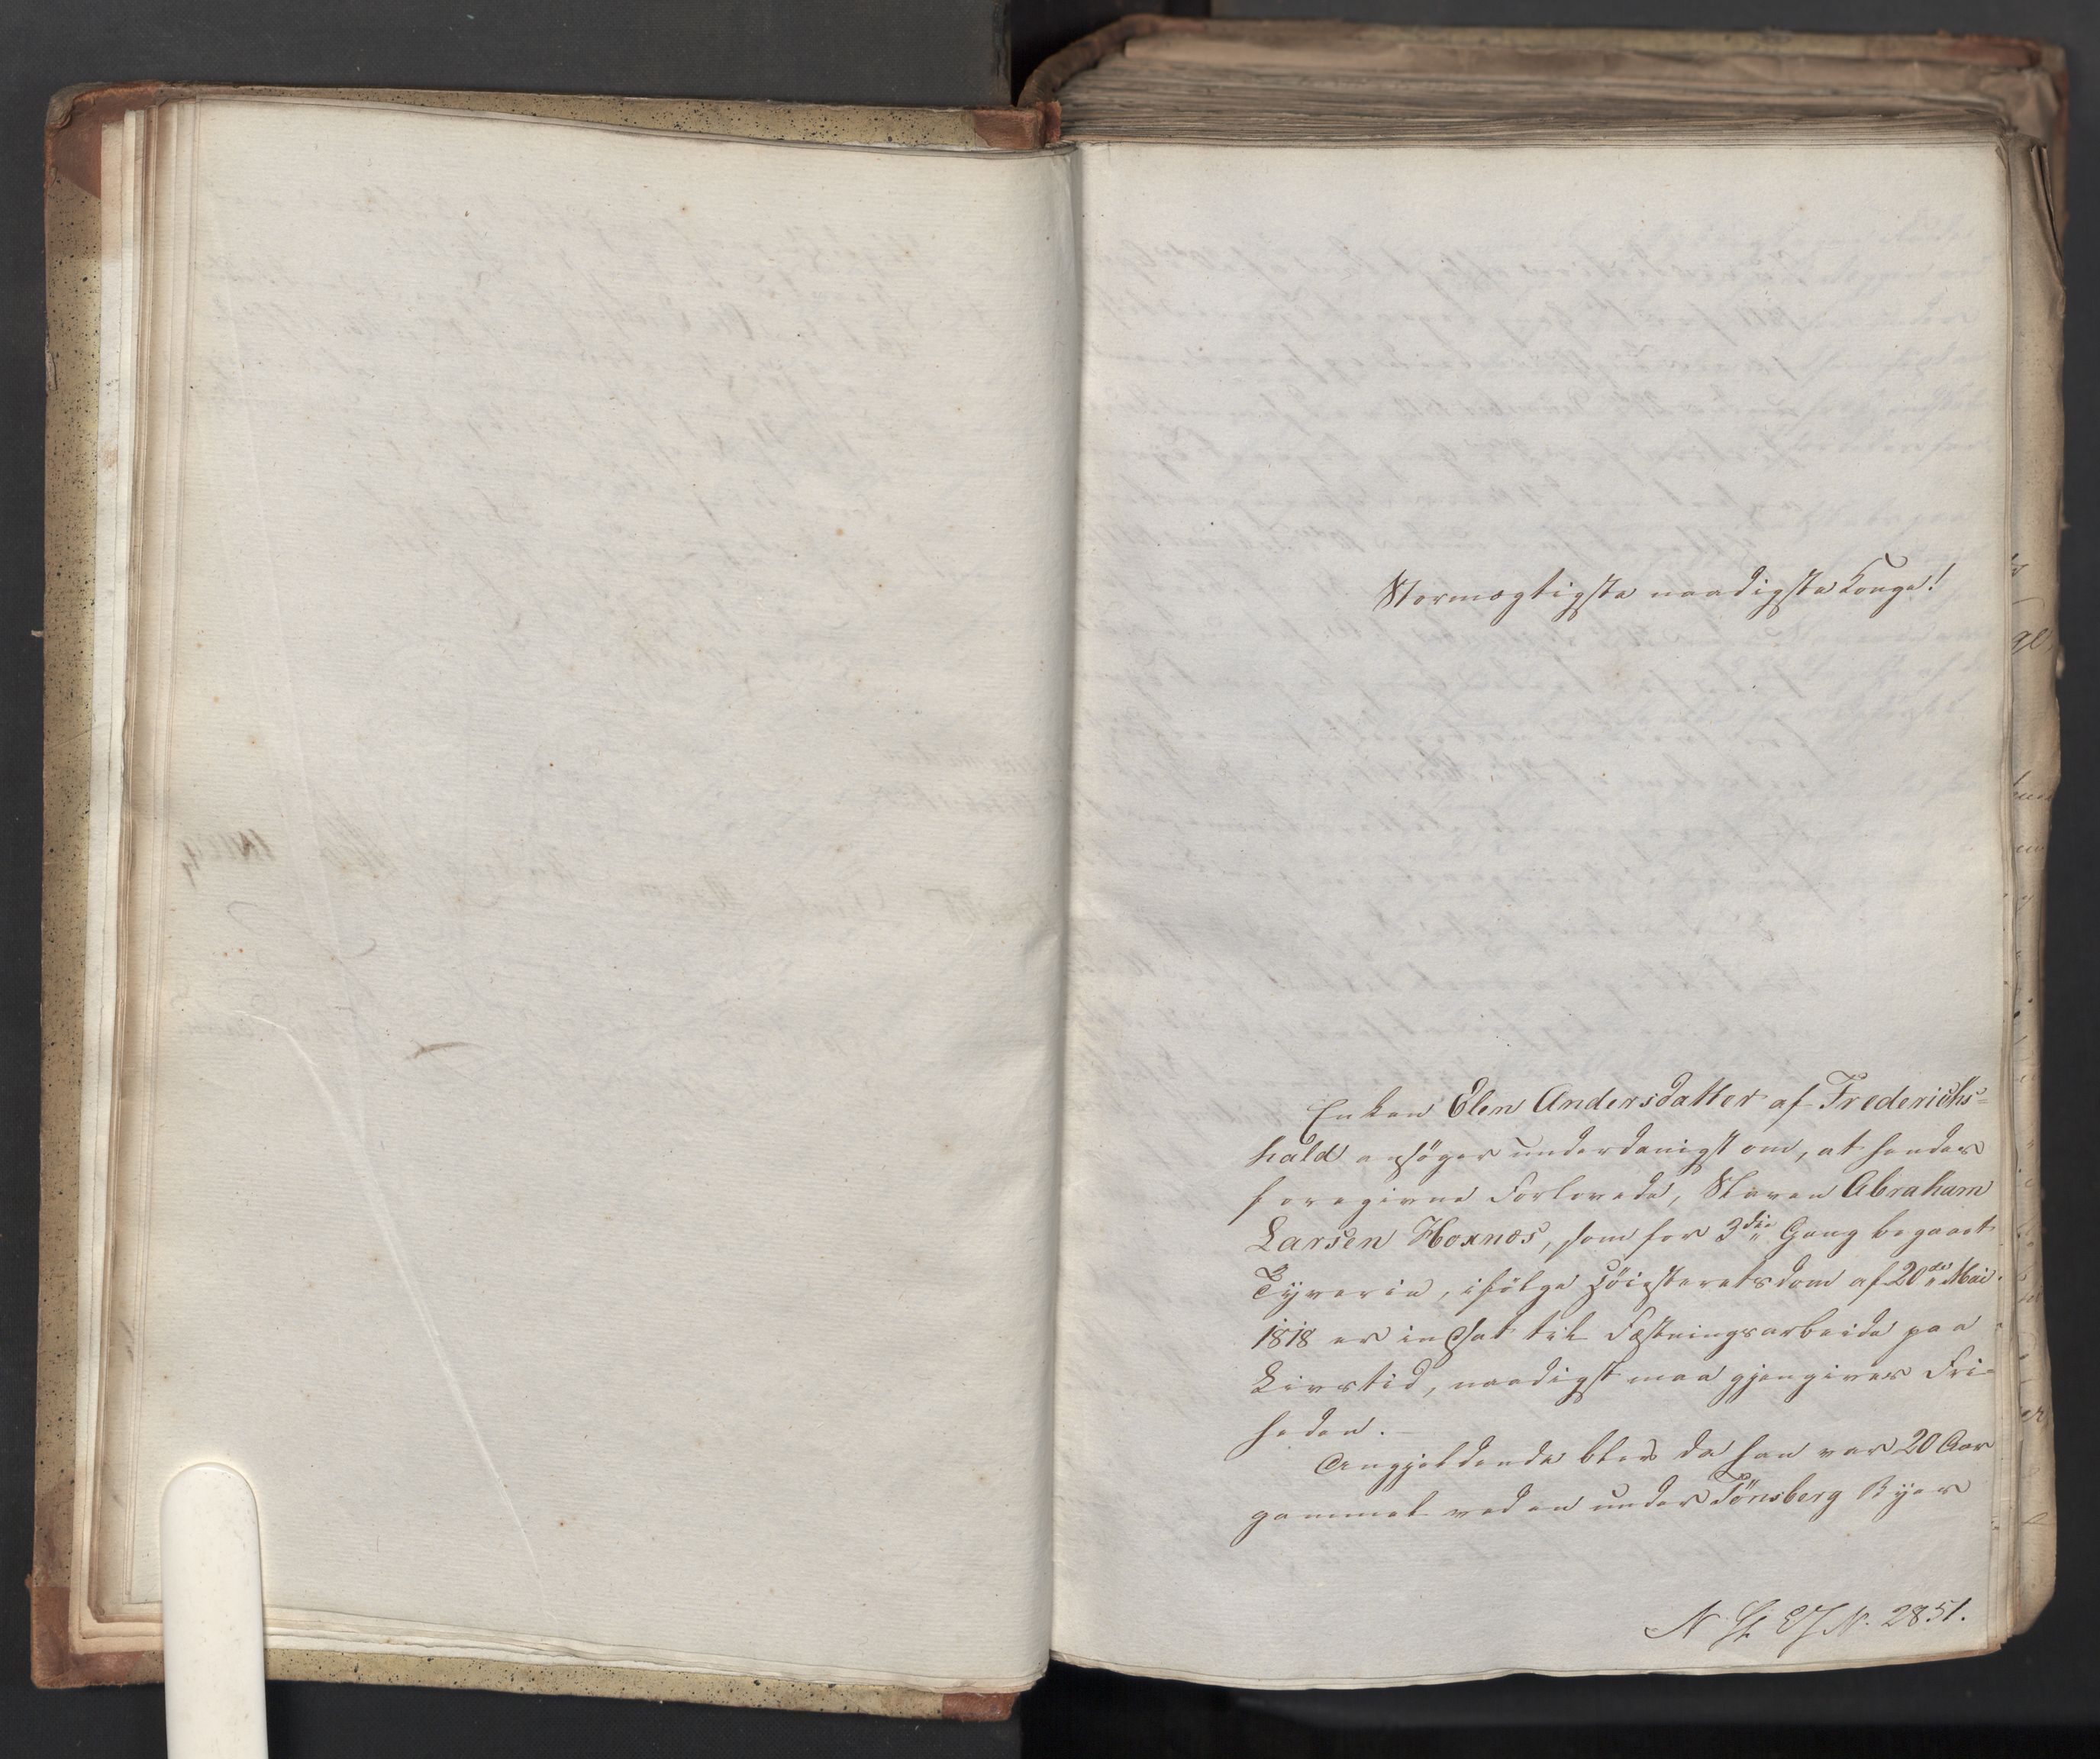 Stormægtigste naadigste Konge!
Enken Elen Andersdatter af Friderichs=
hald ansøger underdanigst om, at hendes
foregivne Forlovede, Slaven Abraham
Larsen Hoxnes, som for 3die Gang begaaet
Tyverie, ifølge Høiesteretsdom af 20de Mai
1818 er indsat til Fæstningsarbeide paa
Livstid, naadigst maa gjengives Fri-
heden.
Angjeldende blev da han var 20 Aar
gammel ved en under Tönsberg Byes
2851.